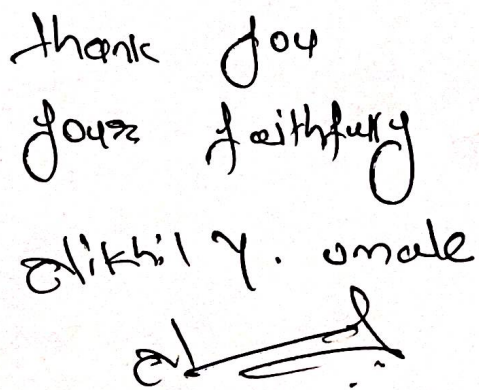 thank you
your faithfully
Nikhil Y. omale